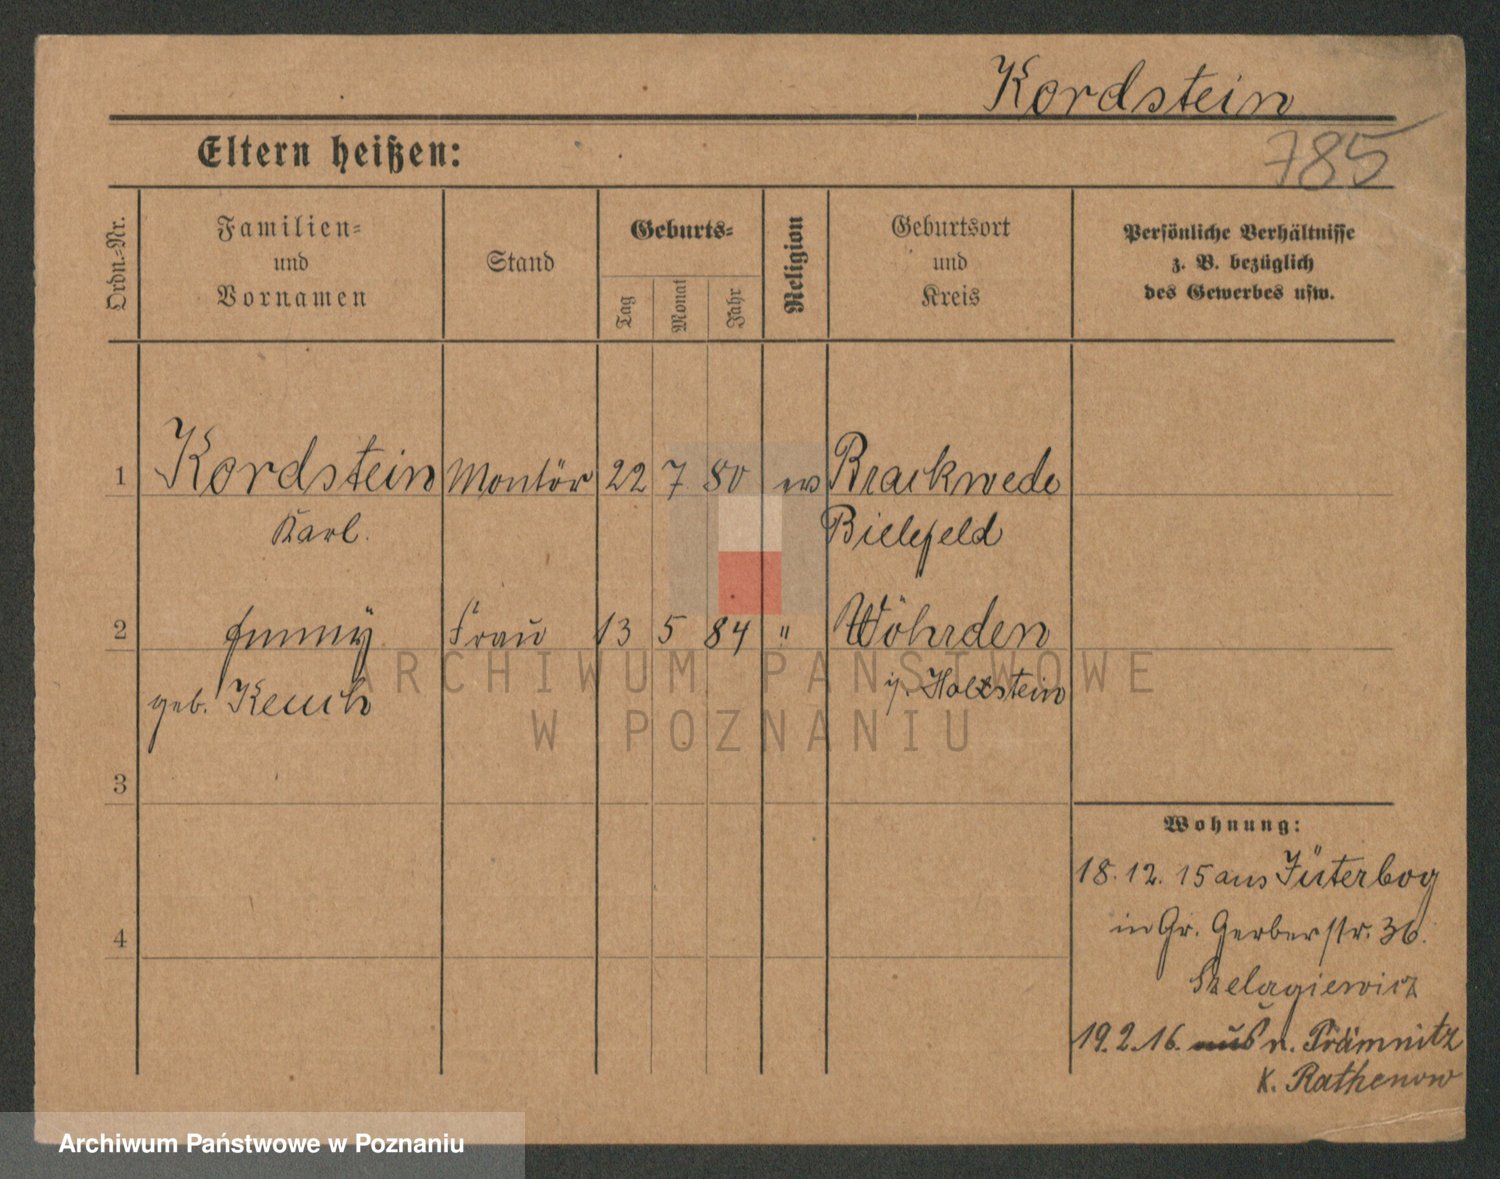 Kordstein
785
Eltern heißen:
Ordn.-Nr.
Familien-
und
Vornamen
Stand
Geburts-
Tag
Monat
Jahr
Religion
Geburtsort
und
Kreis
Persönliche Verhältnisse
z. B. bezüglich
des Gewerbes usw.
1 Kordstein Montör 22 7 80 ev Brackwede
Karl. Bielefeld
2 Emmy Frau 13 5 84 " Wöhrden
geb. Keuch i/. Holstein
3
4
Wohnung:
18.12.15 aus Jüterbog
in Gr. Gerberstr. 36.
Szelagiewicz
19.2.16. n. Prämnitz
K. Rathenow
ARCHIWUM PAŃSTWOWE
W POZNANIU
Archiwum Państwowe w Poznaniu